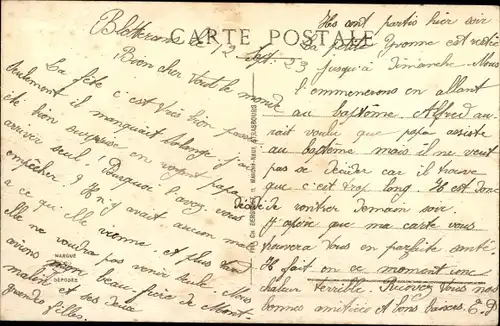 CARTE POSTALE
Blotterans le 12 Sept. 23
Bien cher tout le monde
La fête c'est très bien passée
seulement il manquait Solange. J'ai
été bien surprise en voyant papa
arriver seul ! Pourquoi l'avez vous
empêcher ? Il n'y avait aucun mal
a ce qu'elle vienne et plus tard
elle ne voudra pas venir seule. Nous
avions mon beau-frère de Mont-
malin et ses deux
grandes filles.
MARQUE
DÉPOSÉE
PH. CH. BERGERET, STRASBOURG
Ils sont partis hier soir
La petite Yvonne est restée
jusqu'à dimanche. Nous
l'emmenerons en allant
au baptême. Alfred au-
rait voulu que papa assiste
au baptême mais il ne veut
pas se décider car il trouve
que c'est trop long. Il est donc
décidé de rentrer demain soir.
J'espère que ma carte vous
trouvera tous en parfaite santé
Il fait en ce moment une
chaleur terrible. Recevez tous nos
bonnes amitiées et bons baisers. E. D